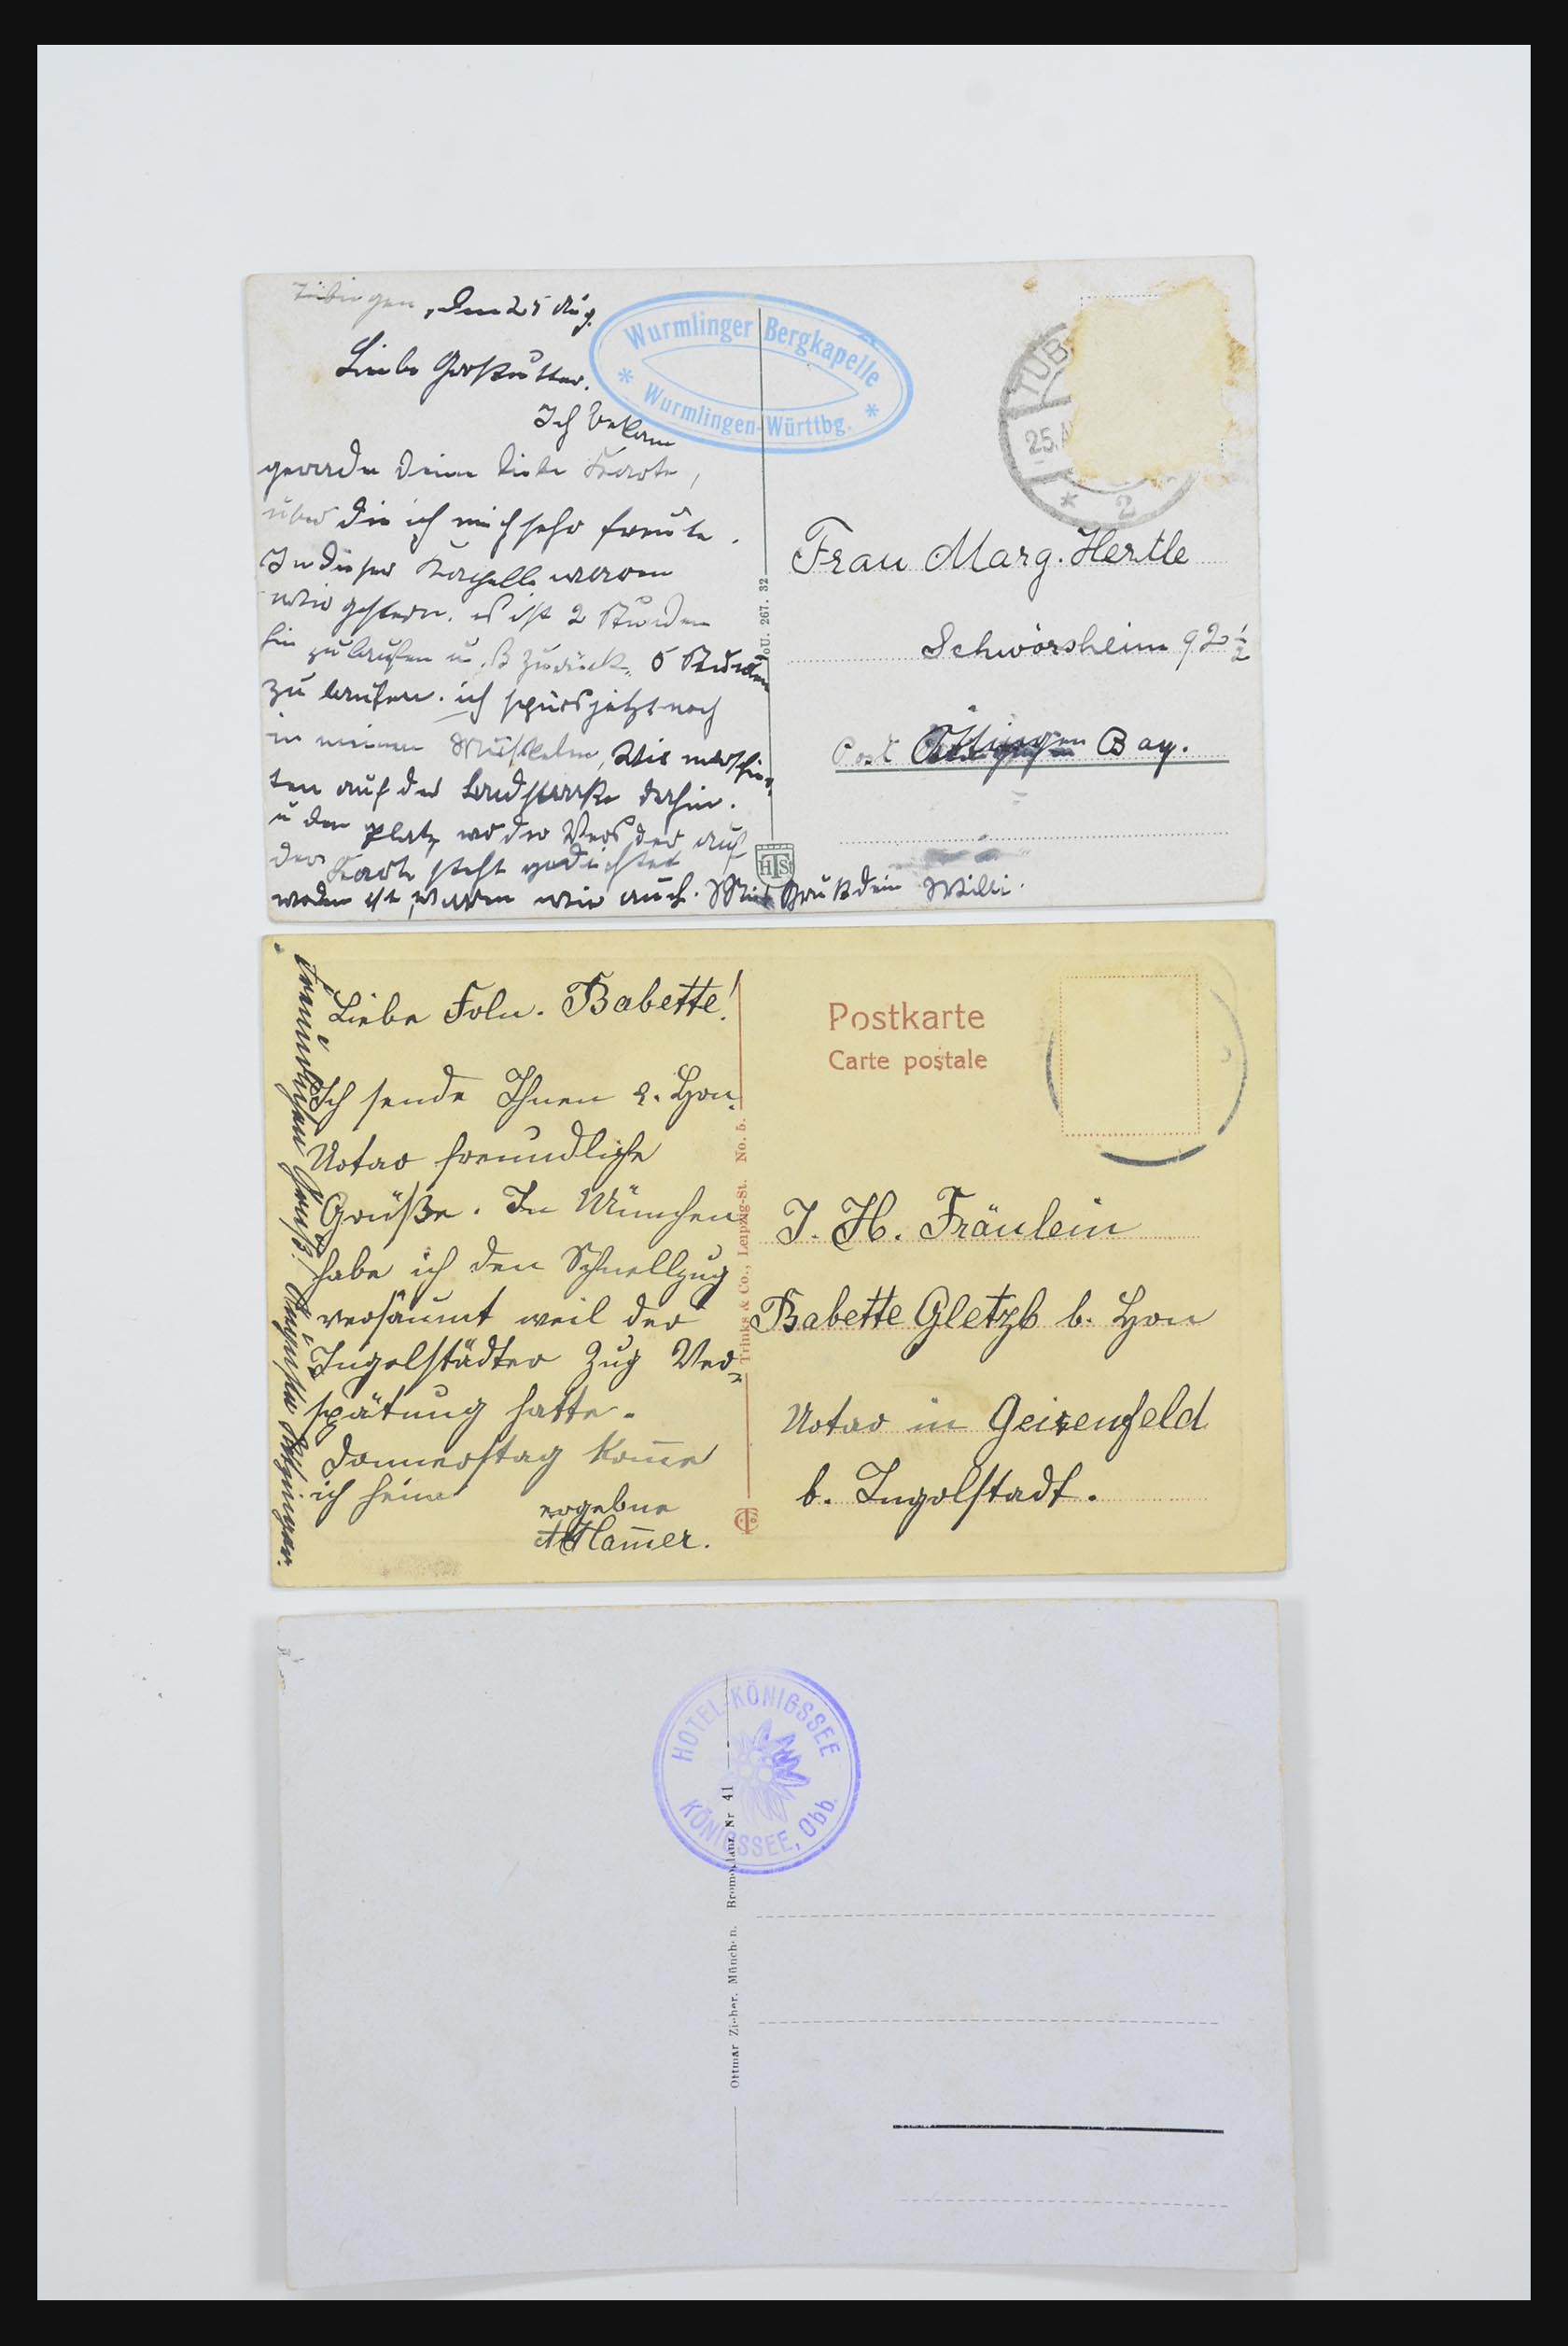 Tübingen, den 25 Aug.
Liebe Großmutter.
Ich bekam
gerade Deine liebe Karte,
über die ich mich sehr freute.
In dieser Kapelle waren
wir gestern. es ist 2 Stunden
hin zu laufen u. zurück. 5 Stunden
zu laufen. ich spürs jetzt noch
in meinen Muskeln, Wir marschier-
ten auf der Landstraße dahin.
u den Platz, wo der Vers der auf
der Karte steht gedichtet
worden ist, waren wir auch. Mit Gruß dein Willi.
Wurmlinger Bergkapelle
* Wurmlingen-Württbg. *
TÜB
25.A
* 2
Frau Marg. Hertle
Schwörsheim 92 ½
Post Öttingen Bay.
oU. 267. 32
HTS
Liebe Frln. Babette!
Ich sende Ihnen u. Hrn.
Notar freundliche
Grüße. In München
habe ich den Schnellzug
versäumt weil der
Ingolstädter Zug Ver-
spätung hatte.
Donnerstag kom̅e
ich heim
ergebne
Ham̅er.
Freundlichen Gruß!
Postkarte
Carte postale
Trinks & Co., Leipzig-St. No. 5.
I. H. Fräulein
Babette Gletzb b. Hrn
Notar in Geisenfeld
b. Ingolstadt.
HOTEL-KÖNIGSSEE
KÖNIGSSEE, Obb.
Ottmar Zieher, München. Bromoglanz Nr 41